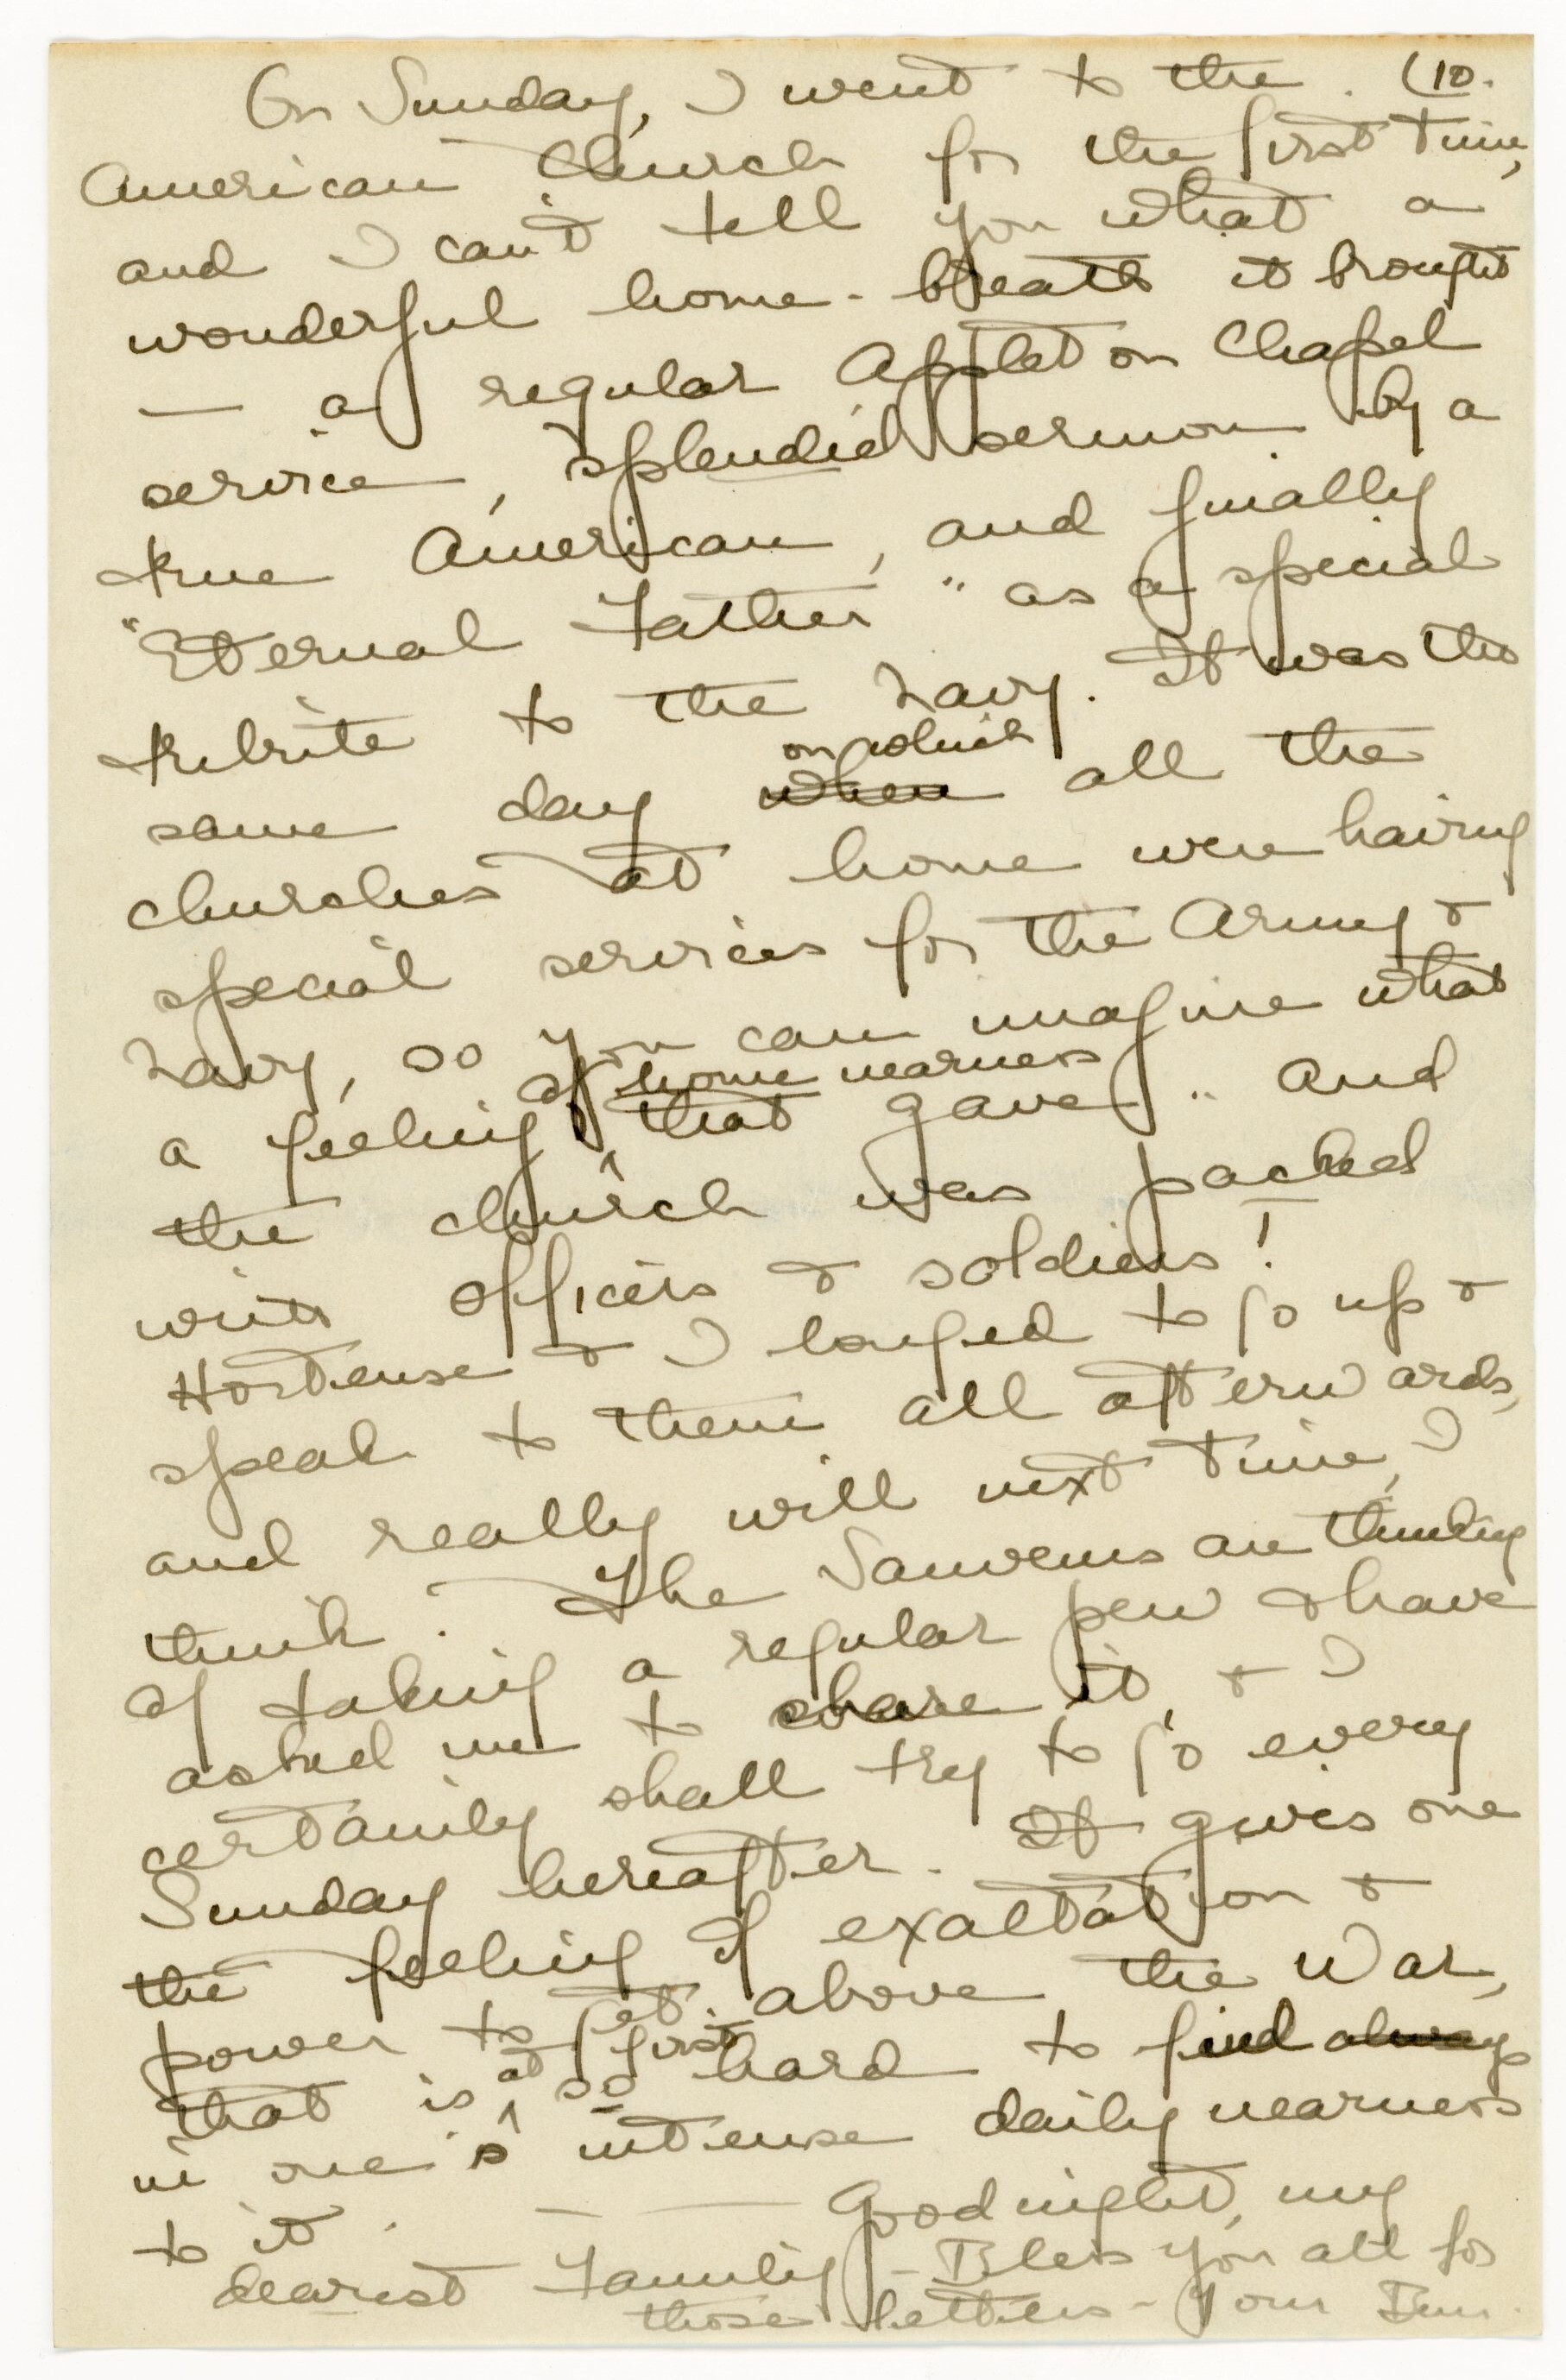 (10.
On Sunday, I went to the
American Church for the first time,
and I can't tell you what a
wonderful home-breath it brought
— a regular Appleton Chapel
service, splendid sermon by a
true American, and finally
"Eternal Father" as a special
tribute to the Navy. It was the
on which
same day when all the
churches at home were having
special services for the Army &
Navy, so you can imagine what
of home nearness
a feeling that gave .. And
the church was packed
with officers & soldiers!
Hortense & I longed to go up &
speak to them all afterwards,
and really will next time, I
think. The are thinking
of taking a regular pew & have
asked me to share it, & I
certainly shall try to go every
Sunday hereafter. It gives one
the feeling of exaltation &
power to get above the War,
at first
that is so hard to find always
in one's intense daily nearness
to it. — — Goodnight, my
dearest Family — Bless you all for
those letters — Your